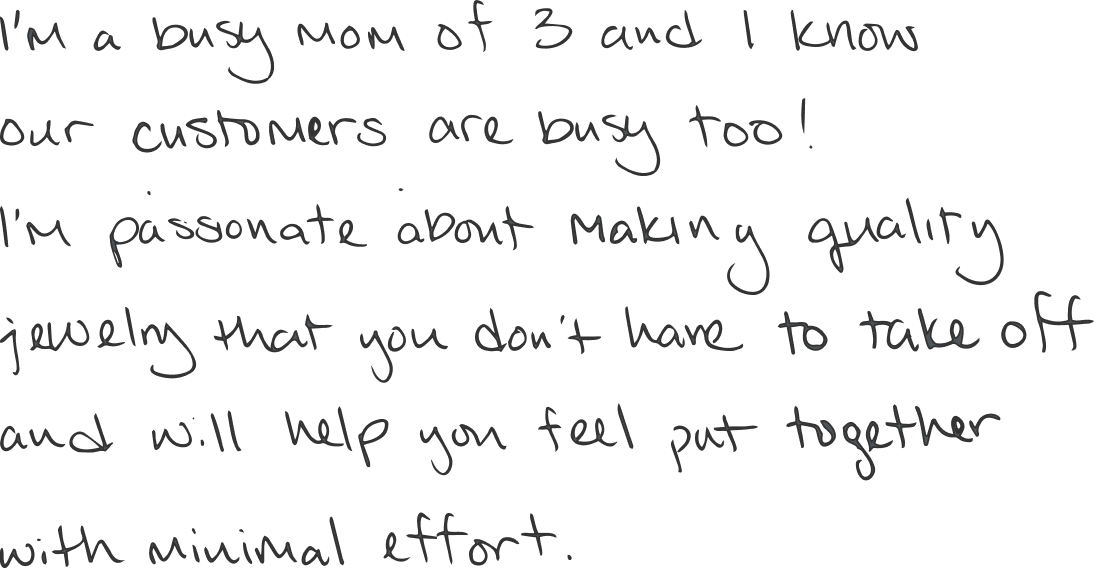 I'm a busy mom of 3 and I know
our customers are busy too!
I'm passionate about making quality
jewelry that you don't have to take off
and will help you feel put together
with minimal effort.